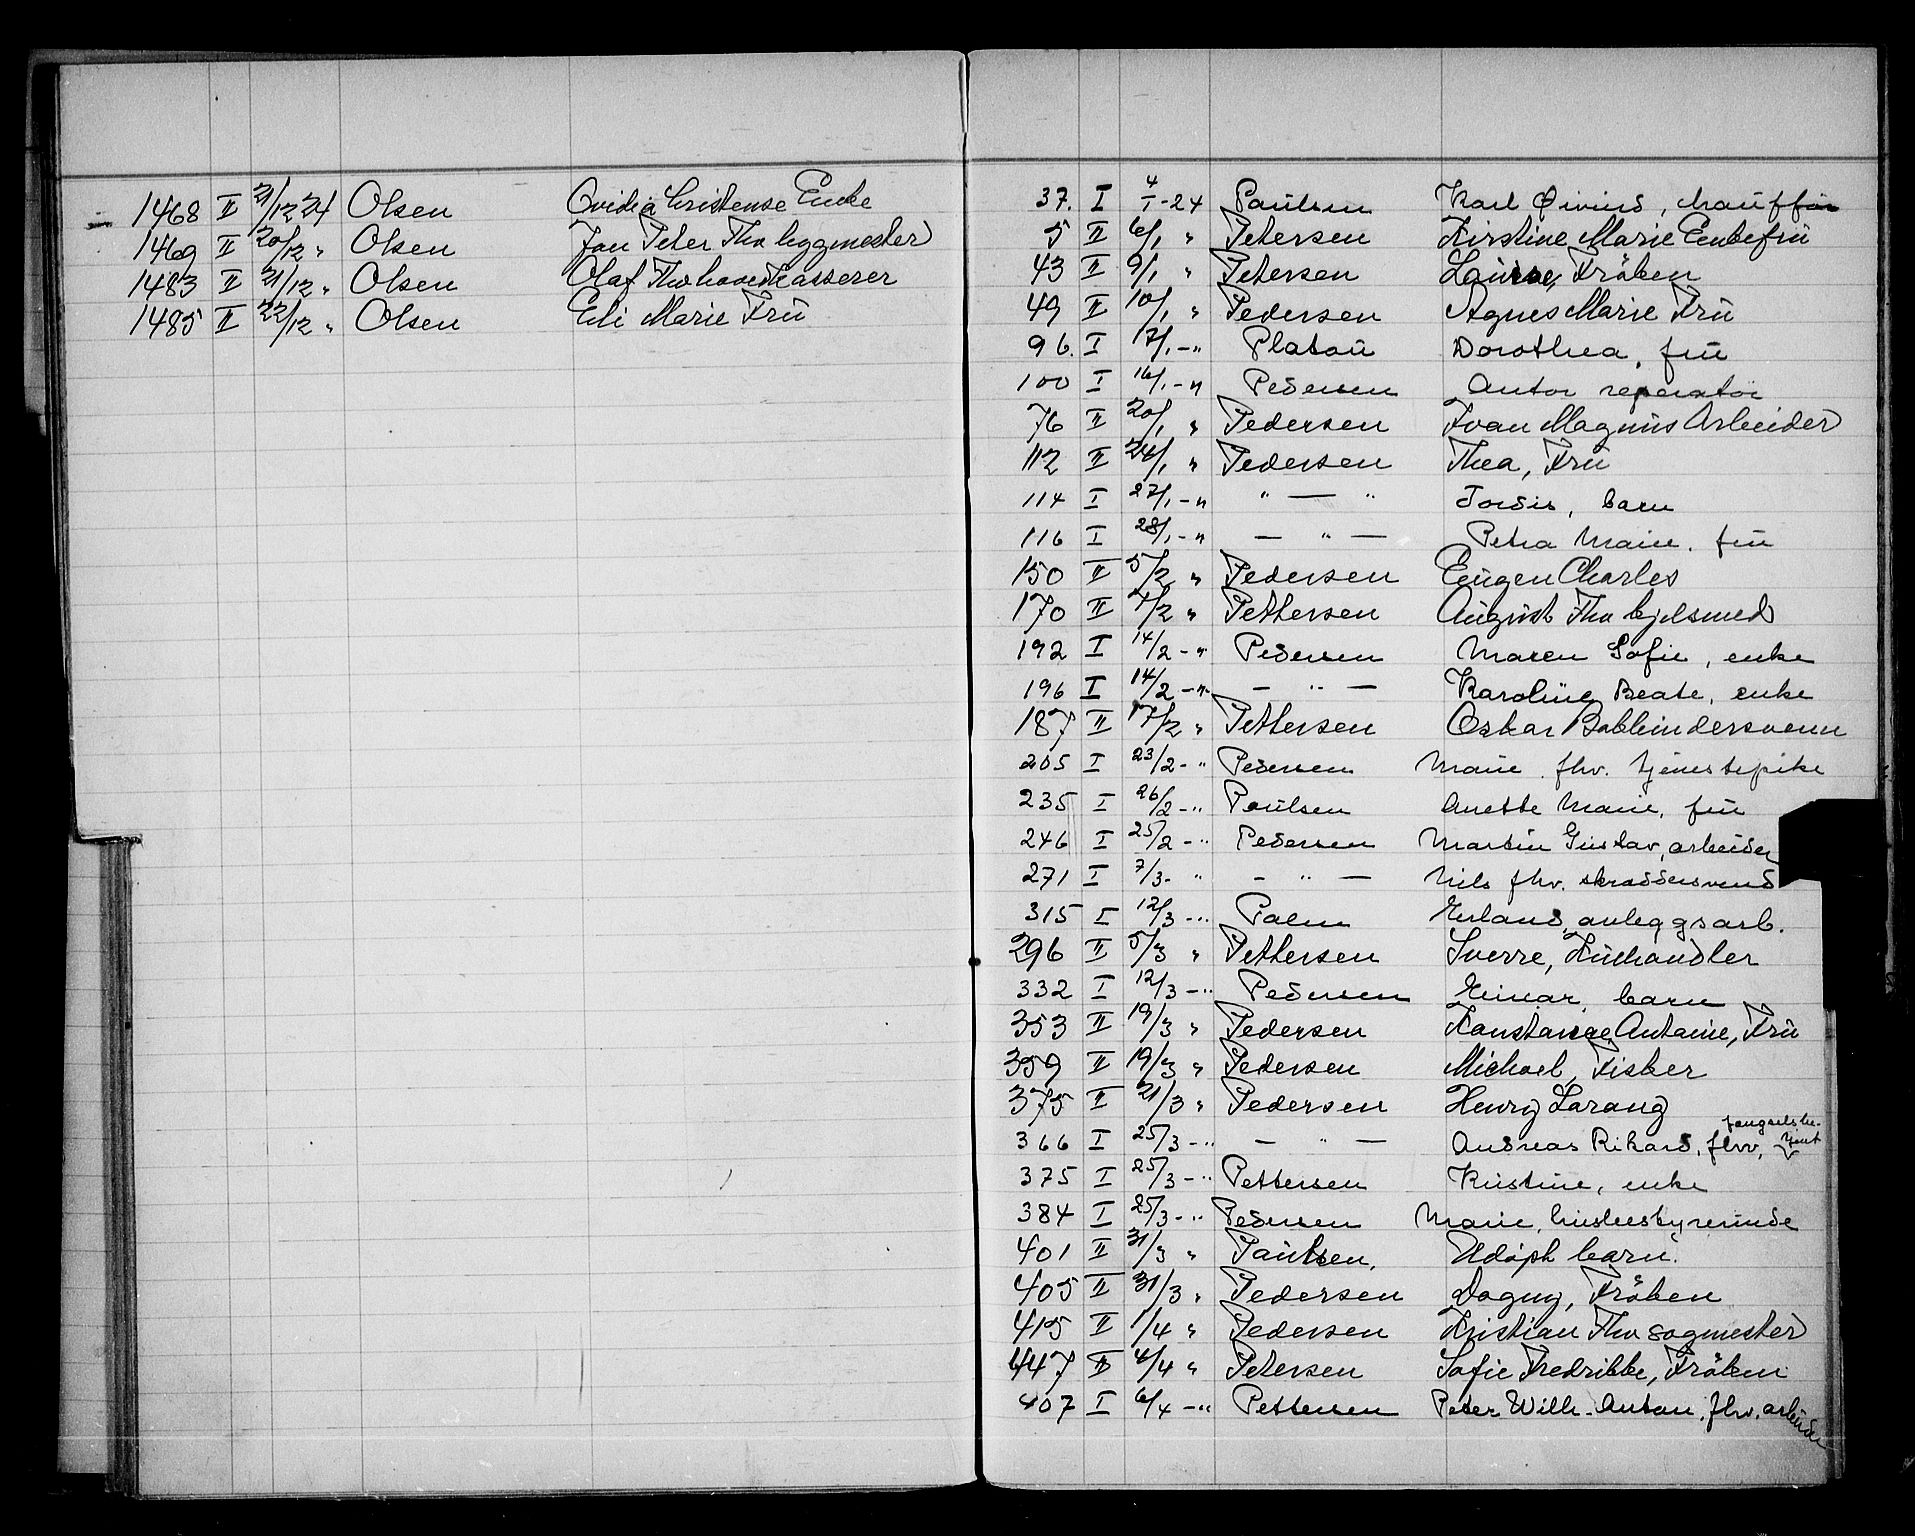 1468 II 21/12 24 Olsen Ovidia Cristense Enke
1469 II 20/12 " Olsen Jan Peter Fhv byggmester
1483 II 21/12 " Olsen Olaf Fhv hovedkasserer
1485 II 22/12 " Olsen Eli Marie Frü
37. I 4/1-24 Paulsen Karl Øivind, chauffür
5 II 6/1 " Petersen Kirstine Marie Enkefrü
43 II 9/1 " Petersen Fröken
49 II 10/1 " Pedersen Agnes Marie Frü
96. I 17/1-" Platoü Dorothea, frü
100 I 16/1-" Pedersen Anton reparatør
76 II 20/1 " Pedersen Ivan Magnus Arbeider
112 II 24/1 " Pedersen Thea, Frü
114 I 27/1-" " — " Tordis, barn
116 I 28/1-" — " — Petra Marie, frü
150 II 5/2 " Pedersen Eugen Charles
170 II 7/2 " Pettersen August Fhv hjulsmed
192 I 14/2-" Pedersen Maren Sofie, enke
196 I 14/2-" — " — Karoline Beate, enke
187 II 17/2 " Pettersen Oskar Bokbindersvenn
205 I 23/2-" Pedersen Marie fhv. tjenestepike
235 I 26/2-" Paulsen Anette Marie, frü
246 I 25/2-" Pedersen Martin Gustav, arbeider
271 I 7/3-" — " — Nils fhv. skreddersvend
315 I 12/3-" Palm Erland, anleggsarb.
296 II 5/3 " Pettersen Sverre,
332 I 12/3-" Pedersen Einar, barn
353 II 19/3 " Pedersen Konstance Antonie, Frü
359 II 19/3 " Pedersen Michael, Fisker
375 II 21/3 " Pedersen Henry
366 I 25/3-" — " — Andreas Rikard, fhv, fengselsbe-tjent
375 I 25/3-" Pettersen Kristine, enke
384 I 25/3-" Pedersen Marie, husbestyrerinde
401 II 31/3 " Paulsen, barn.
405 II 31/3 " Pedersen Dagny, Fröken
415 II 1/4 " Pedersen Kristian Fhv sagmester
447 II 4/4 " Petersen Sofie Fredrikke, Fröken
407 I 6/4-" Pettersen Peter Wilh. Anton, fhv. arbeider